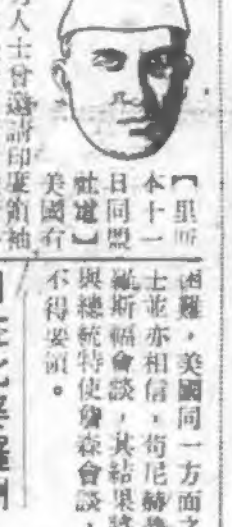 【里斯
本十一
日同盟
社電】
美國有
人士會邀請印度領袖
困難，美國同一方面之
士並亦相信，苟尼赫
羅斯福會談，其結果將
與總統特使詹森會談，
不得要領。